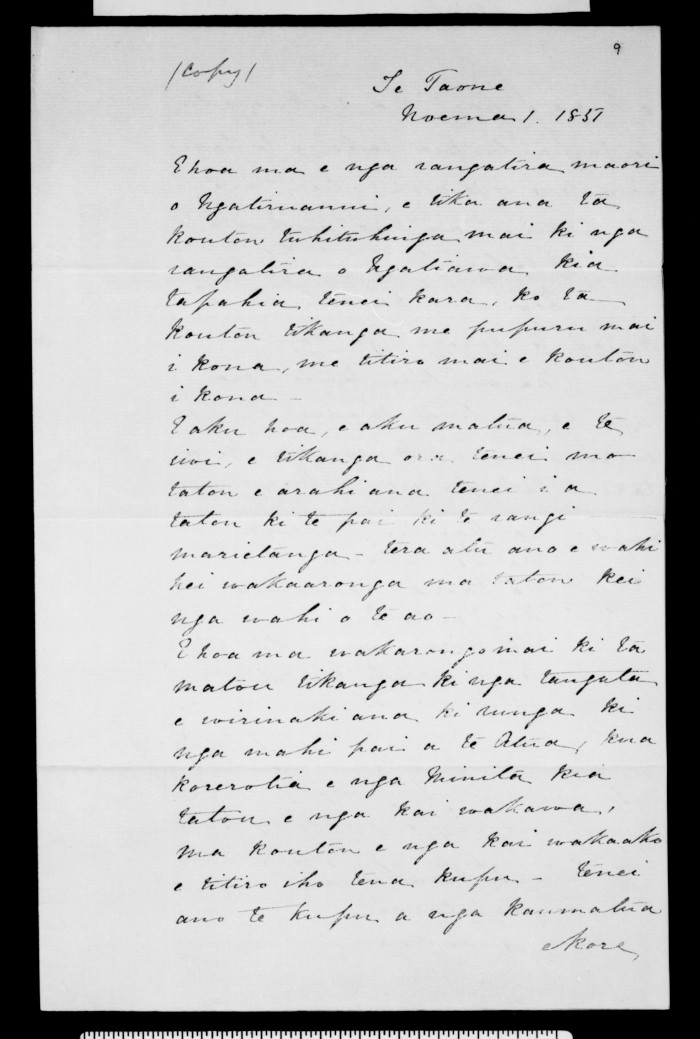 9
(Copy)
Te Taone
Noema 1. 1851
E hoa ma e nga rangatira maori
o Ngatiruanui, e tika ana ta
koutou tuhituhinga mai ki nga
rangatira o Ngatiawa kia
tapahia tenei kara, ko ta
koutou tikanga me pupuru mai
i kona, me titiro mai e koutou
i kona -
E aku hoa, e aku matua, e te
iwi, e tikanga ora tenei mo
tatou e arahi ana tenei i a
tatou ki te pai ki te rangi
marietanga - tera atu ano e wahi
hei wakaaronga ma tatou kei
nga wahi o te ao -
E hoa ma wakarongo mai ki ta
matou tikanga ki nga tangata
e wirinaki ana ki runga ki
nga mahi pai a te Atua, kua
korerotia e nga Minita kia
tatou e nga kai wakawa,
ma koutou e nga kai wakaako
e titiro iho tena kupu - tenei
ano te kupu a nga kaumatua